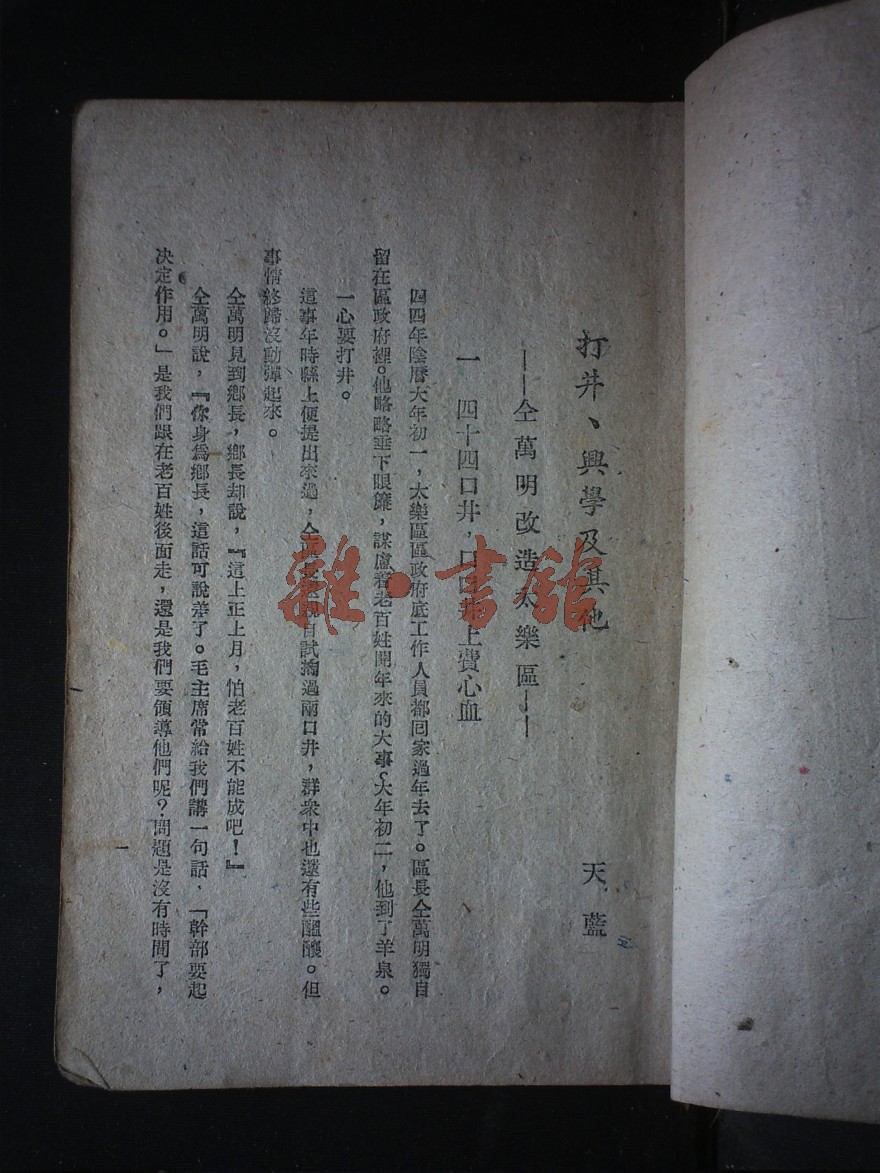 打井、興學及其他
——仝萬明改造太樂區——
天藍
一　四十四口井，口口井上費心血
四四年陰曆大年初一，太樂區區政府底工作人員都回家過年去了。區長仝萬明獨自
留在區政府裡。他略略垂下眼簾，謀慮着老百姓開年來的大事。大年初二，他到了羊泉。
一心要打井。
這事年時縣上便提出來過，仝區長親自試掏過兩口井，群衆中也還有些醞釀。但
事情終歸沒動彈起來。
仝萬明見到鄉長，鄉長却說，『這上正上月，怕老百姓不能成吧！』
仝萬明說，『你身爲鄉長，這話可說差了。毛主席常給我們講一句話，「幹部要起
决定作用。」是我們跟在老百姓後面走，還是我們要領導他們呢？問題是沒有時間了，
一
雜·書館